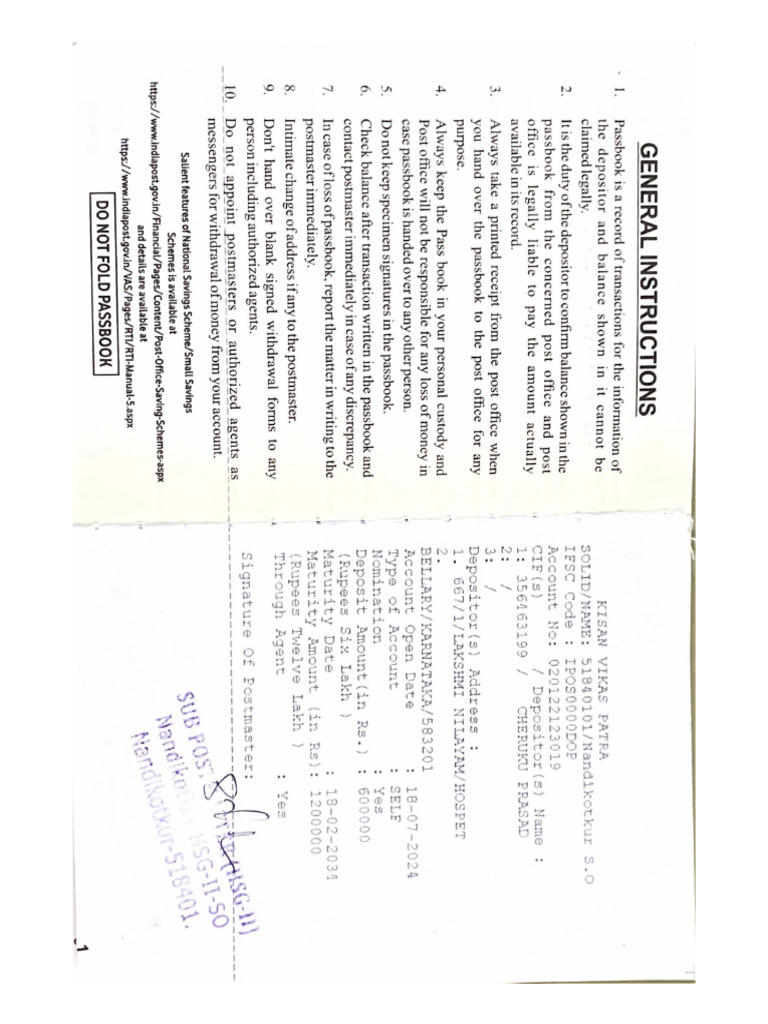 GENERAL INSTRUCTIONS
1. Passbook is a record of transactions for the information of
the depositor and balance shown in it cannot be
claimed legally.
2. It is the duty of the depositor to confirm balance shown in the
passbook from the concerned post office and post
office is legally liable to pay the amount actually
available in its record.
3. Always take a printed receipt from the post office when
you hand over the passbook to the post office for any
purpose.
4. Always keep the Pass book in your personal custody and
Post office will not be responsible for any loss of money in
case passbook is handed over to any other person.
5. Do not keep specimen signatures in the passbook.
6. Check balance after transaction written in the passbook and
contact postmaster immediately in case of any discrepancy.
7. In case of loss of passbook, report the matter in writing to the
postmaster immediately.
8. Intimate change of address if any to the postmaster.
9. Don't hand over blank signed withdrawal forms to any
person including authorized agents.
10. Do not appoint postmasters or authorized agents as
messengers for withdrawal of money from your account.
Salient features of National Savings Scheme/Small Savings
Schemes is available at
https://www.indiapost.gov.in/Financial/Pages/Content/Post-Office-Saving-Schemes-aspx
and details are available at
https://www.indiapost.gov.in/VAS/Pages/RTI/RTI-Manual-5.aspx
DO NOT FOLD PASSBOOK
KISAN VIKAS PATRA
SOLID/NAME: 51840101/Nandikotkur S.O
IFSC Code : IPOS0000DOP
Account No: 020122123019
CIF(s) / Depositor(s) Name :
1: 356463199 / CHERUKU PRASAD
2: /
3: /
Depositor(s) Address :
1. 667/1/LAKSHMI NILAYAM/HOSPET
2.
BELLARY/KARNATAKA/583201
Account Open Date : 18-07-2024
Type of Account : SELF
Nomination : Yes
Deposit Amount(in Rs.) : 600000
(Rupees Six Lakh )
Maturity Date : 18-02-2034
Maturity Amount (in Rs): 1200000
(Rupees Twelve Lakh )
Through Agent : Yes
Signature Of Postmaster:
SUB POST (HSG-II)
HSG-II-SO
Nandikotkur-518401.
1